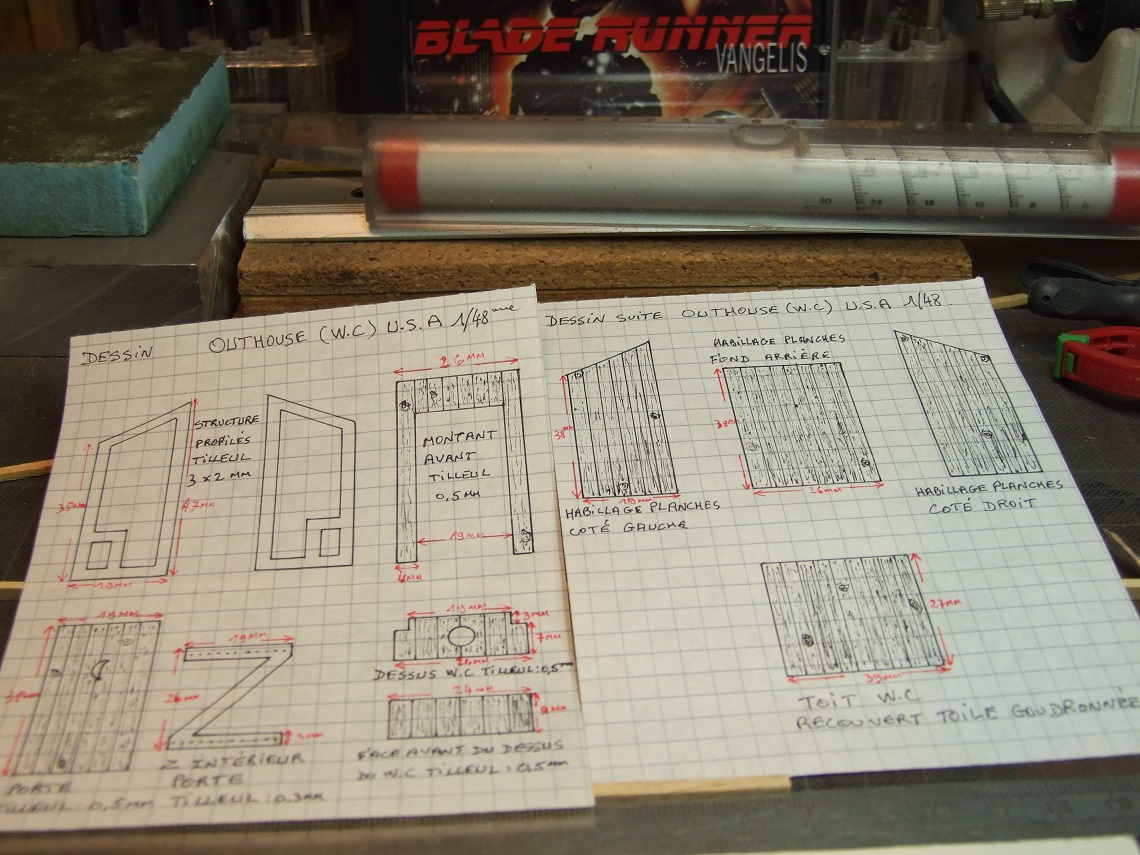 BLADE RUNNER
VANGELIS
30 24 18 12 6 0
DESSIN OUTHOUSE (W.C) U.S.A 1/48ème
STRUCTURE
PROFILÉS
TILLEUL
3 x 2 MM
38MM
47MM
19MM
26MM
MONTANT
AVANT
TILLEUL
0,5MM
19MM
4MM
38MM
19MM
PORTE
TILLEUL : 0,5MM
19MM
26MM
3MM
Z INTÉRIEUR
PORTE
TILLEUL : 0.3MM
19MM
3MM
7MM
DESSUS W.C TILLEUL : 0,5MM
24MM
FACE AVANT DU DESSUS
DU W.C TILLEUL : 0,5MM
DESSIN SUITE OUTHOUSE (W.C) U.S.A 1/48
38MM
19MM
HABILLAGE PLANCHES
COTÉ GAUCHE
HABILLAGE PLANCHES
FOND ARRIÈRE
38MM
26MM
HABILLAGE PLANCHES
COTÉ DROIT
27MM
TOIT W.C
RECOUVERT TOILE GOUDRONNÈE